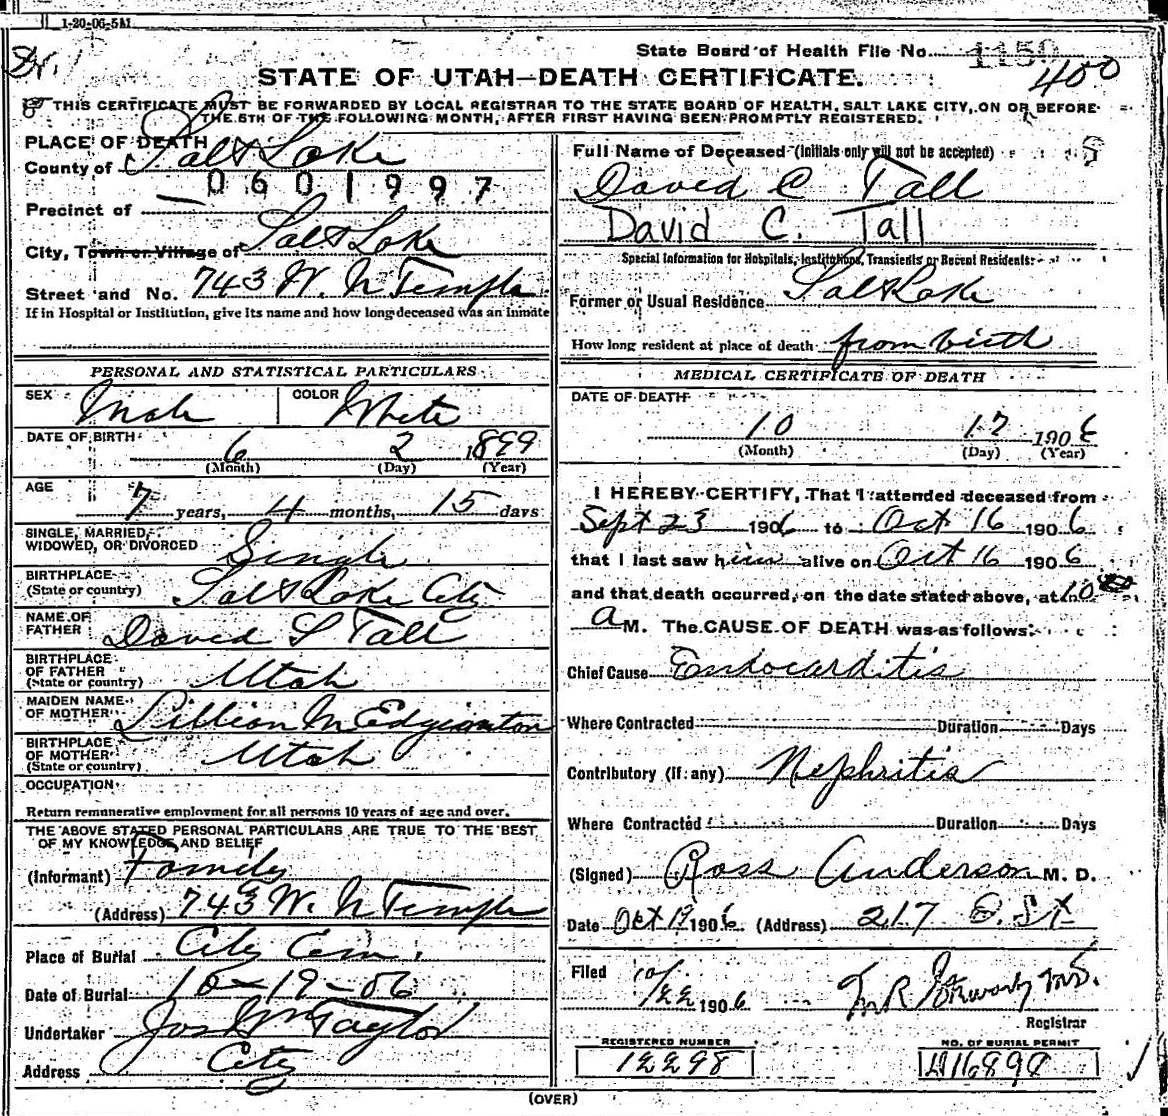 1-20-06-5M
State Board of Health File No. 1150
400
STATE OF UTAH—DEATH CERTIFICATE.
THIS CERTIFICATE MUST BE FORWARDED BY LOCAL REGISTRAR TO THE STATE BOARD OF HEALTH, SALT LAKE CITY, ON OR BEFORE
THE 5TH OF THE FOLLOWING MONTH, AFTER FIRST HAVING BEEN PROMPTLY REGISTERED.
PLACE OF DEATH
County of Salt Lake
0601997
Precinct of
City, Town or Village of Salt Lake
Street and No. 743 W. N Temple
If in Hospital or Institution, give its name and how long deceased was an inmate
PERSONAL AND STATISTICAL PARTICULARS
SEX Male COLOR White
DATE OF BIRTH 6 2 1899
(Month) (Day) (Year)
AGE 7 years, 4 months, 15 days
SINGLE, MARRIED,
WIDOWED, OR DIVORCED Single
BIRTHPLACE
(State or country) Salt Lake City
NAME OF
FATHER David S Tall
BIRTHPLACE
OF FATHER
(State or country) Utah
MAIDEN NAME
OF MOTHER Lillian M Edgimnton
BIRTHPLACE
OF MOTHER
(State or country) Utah
OCCUPATION
Return remunerative employment for all persons 10 years of age and over.
THE ABOVE STATED PERSONAL PARTICULARS ARE TRUE TO THE BEST
OF MY KNOWLEDGE AND BELIEF
(Informant) Family
(Address) 743 W. N Temple
Place of Burial City Cem.
Date of Burial 10-19-06
Undertaker Jos Wm Taylor
Address City
Full Name of Deceased (Initials only will not be accepted)
David C Tall
David C. Tall
Special Information for Hospitals, Institutions, Transients or Recent Residents:
Former or Usual Residence Salt Lake
How long resident at place of death from birth
MEDICAL CERTIFICATE OF DEATH
DATE OF DEATH
10 17 1906
(Month) (Day) (Year)
I HEREBY CERTIFY, That I attended deceased from
Sept 23 1906 to Oct 16 1906
that I last saw him alive on Oct 16 1906
and that death occurred, on the date stated above, at 10
a M. The CAUSE OF DEATH was as follows:
Chief Cause Endocarditis
Where Contracted Duration Days
Contributory (if any) Nephritis
Where Contracted Duration Days
(Signed) Ross Anderson M. D.
Date Oct 19 1906. (Address) 217 E. St
Filed 10/22 1906 M.D.
Registrar
REGISTERED NUMBER
12298
NO. OF BURIAL PERMIT
(OVER)